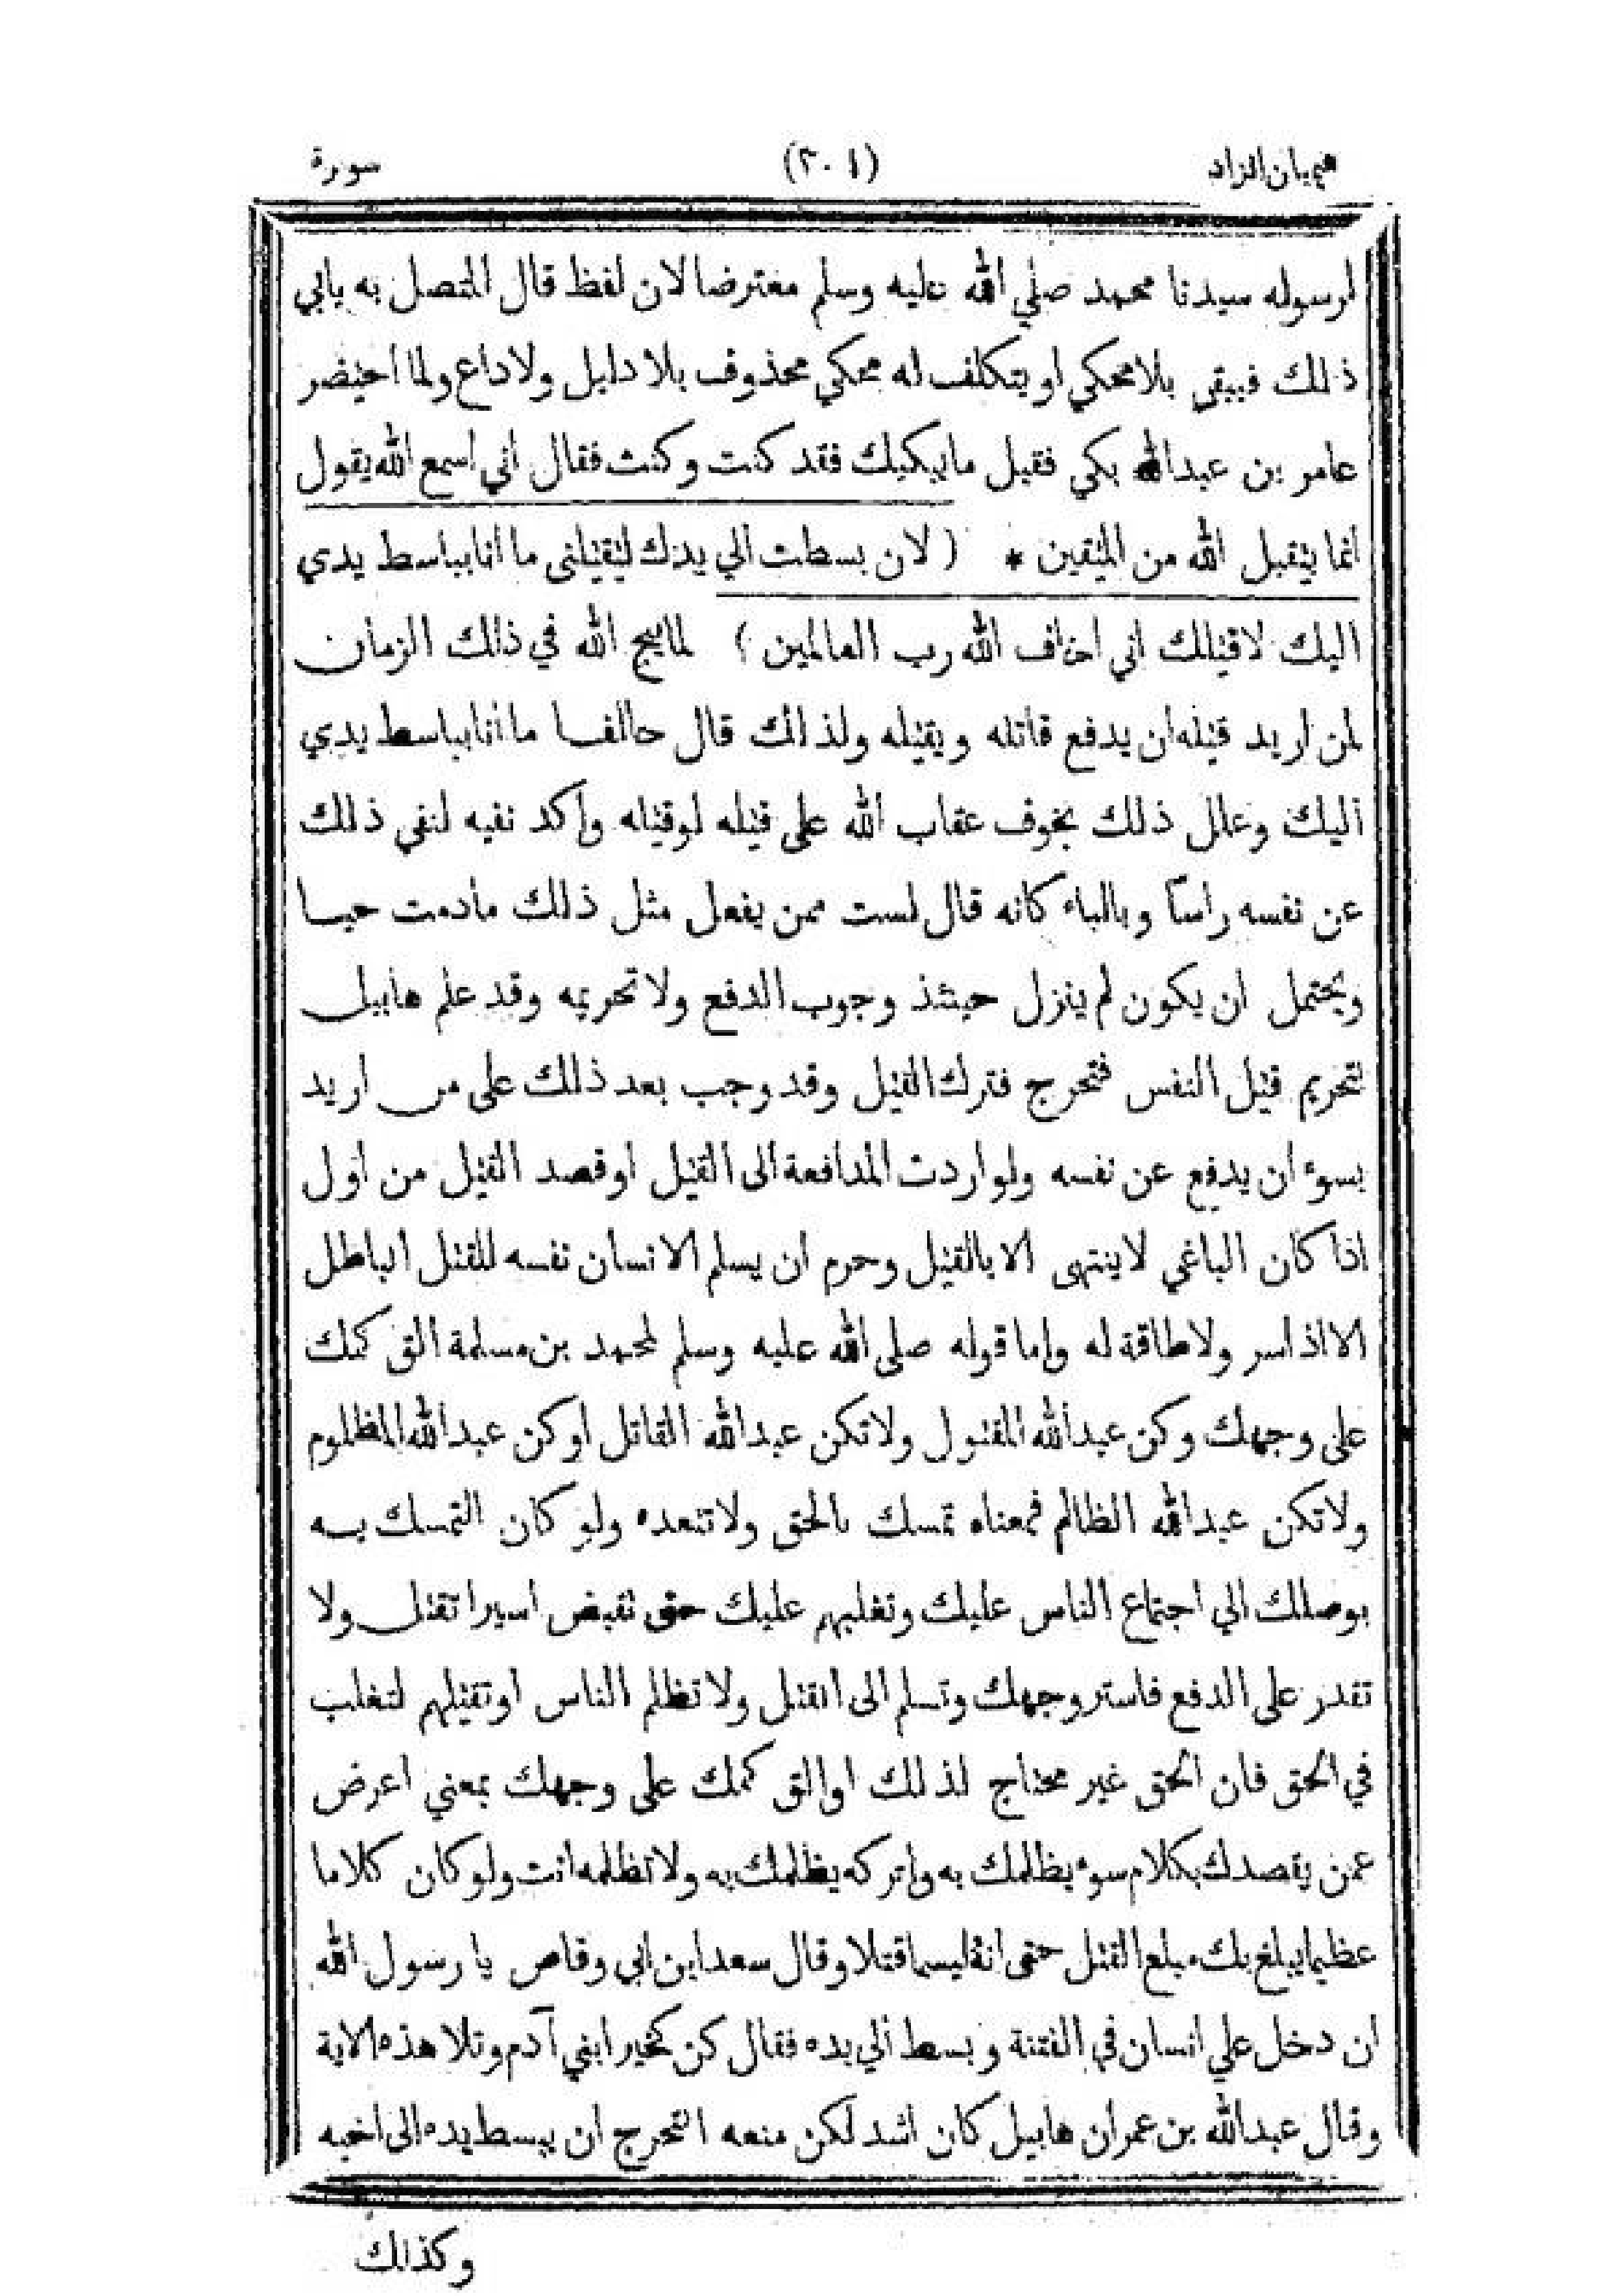 هميان الزاد (٢٠١) سورة
لرسوله سيدنا محمد صلي الله عليه وسلم معترضا لان لفظ قال المتصل به يابي
ذلك فيبقى بلا محكي او يتكلف له محكي محذوف بلا دليل ولا داع ولما احتضر
عامر بن عبدالله بكي فقيل ما يبكيك فقد كنت وكنت فقال اني اسمع الله يقول
انما يتقبل الله من المتقين * ( لان بسطت الي يدك لتقتلنى ما أنا بباسط يدي
اليك لاقتلك اني اخاف الله رب العالمين ) لما يبح الله في ذلك الزمان
لمن اريد قتله ان يدفع قاتله ويقتله ولذلك قال حالفا ما انا بباسط يدي
اليك وعلل ذلك بخوف عقاب الله على قتله لو قتله واكد نفيه لنفي ذلك
عن نفسه راسا وبالباء كانه قال لست ممن يفعل مثل ذلك مادمت حيا
ويحتمل ان يكون لم ينزل حينئذ وجوب الدفع ولا تحريمه وقد علم هابيل
تحريم قتل النفس فتحرج فترك القتل وقد وجب بعد ذلك على من اريد
بسوء ان يدفع عن نفسه ولو اردت المدافعة الى القتل او قصد القتل من اول
اذا كان الباغي لا ينتهى الا بالقتل وحرم ان يسلم الانسان نفسه للقتل الباطل
الا اذ اسر ولا طاقة له واما قوله صلى الله عليه وسلم لمحمد بن مسلمة الق كمك
على وجهك وكن عبدالله المقتول ولا تكن عبدالله القاتل او كن عبدالله المظلوم
ولا تكن عبدالله الظالم فمعناه تمسك بالحق ولا تتعده ولو كان التمسك به
يوصلك الي اجتماع الناس عليك وتغلبهم عليك حتى تقبض اسيرا تقتل ولا
تقدر على الدفع فاستر وجهك وتسلم الى القتل ولا تظلم الناس او تقتلهم لتغلب
في الحق فان الحق غير محتاج لذلك او الق كمك على وجهك بمعني اعرض
عمن يقصدك بكلام سوء يظلمك به واتركه يظلمك به ولا تظلمه انت ولو كان كلاما
عظيما يبلغ بك مبلغ القتل حتى انه ليسما قتلا وقال سعد ابن ابي وقاص يا رسول الله
ان دخل علي انسان في الفتنة وبسط الي يده فقال كن كخير ابني آدم وتلا هذه الاية
وقال عبدالله بن عمران هابيل كان اشد لكن منعه التحرج ان يبسط يده الى اخيه
وكذلك